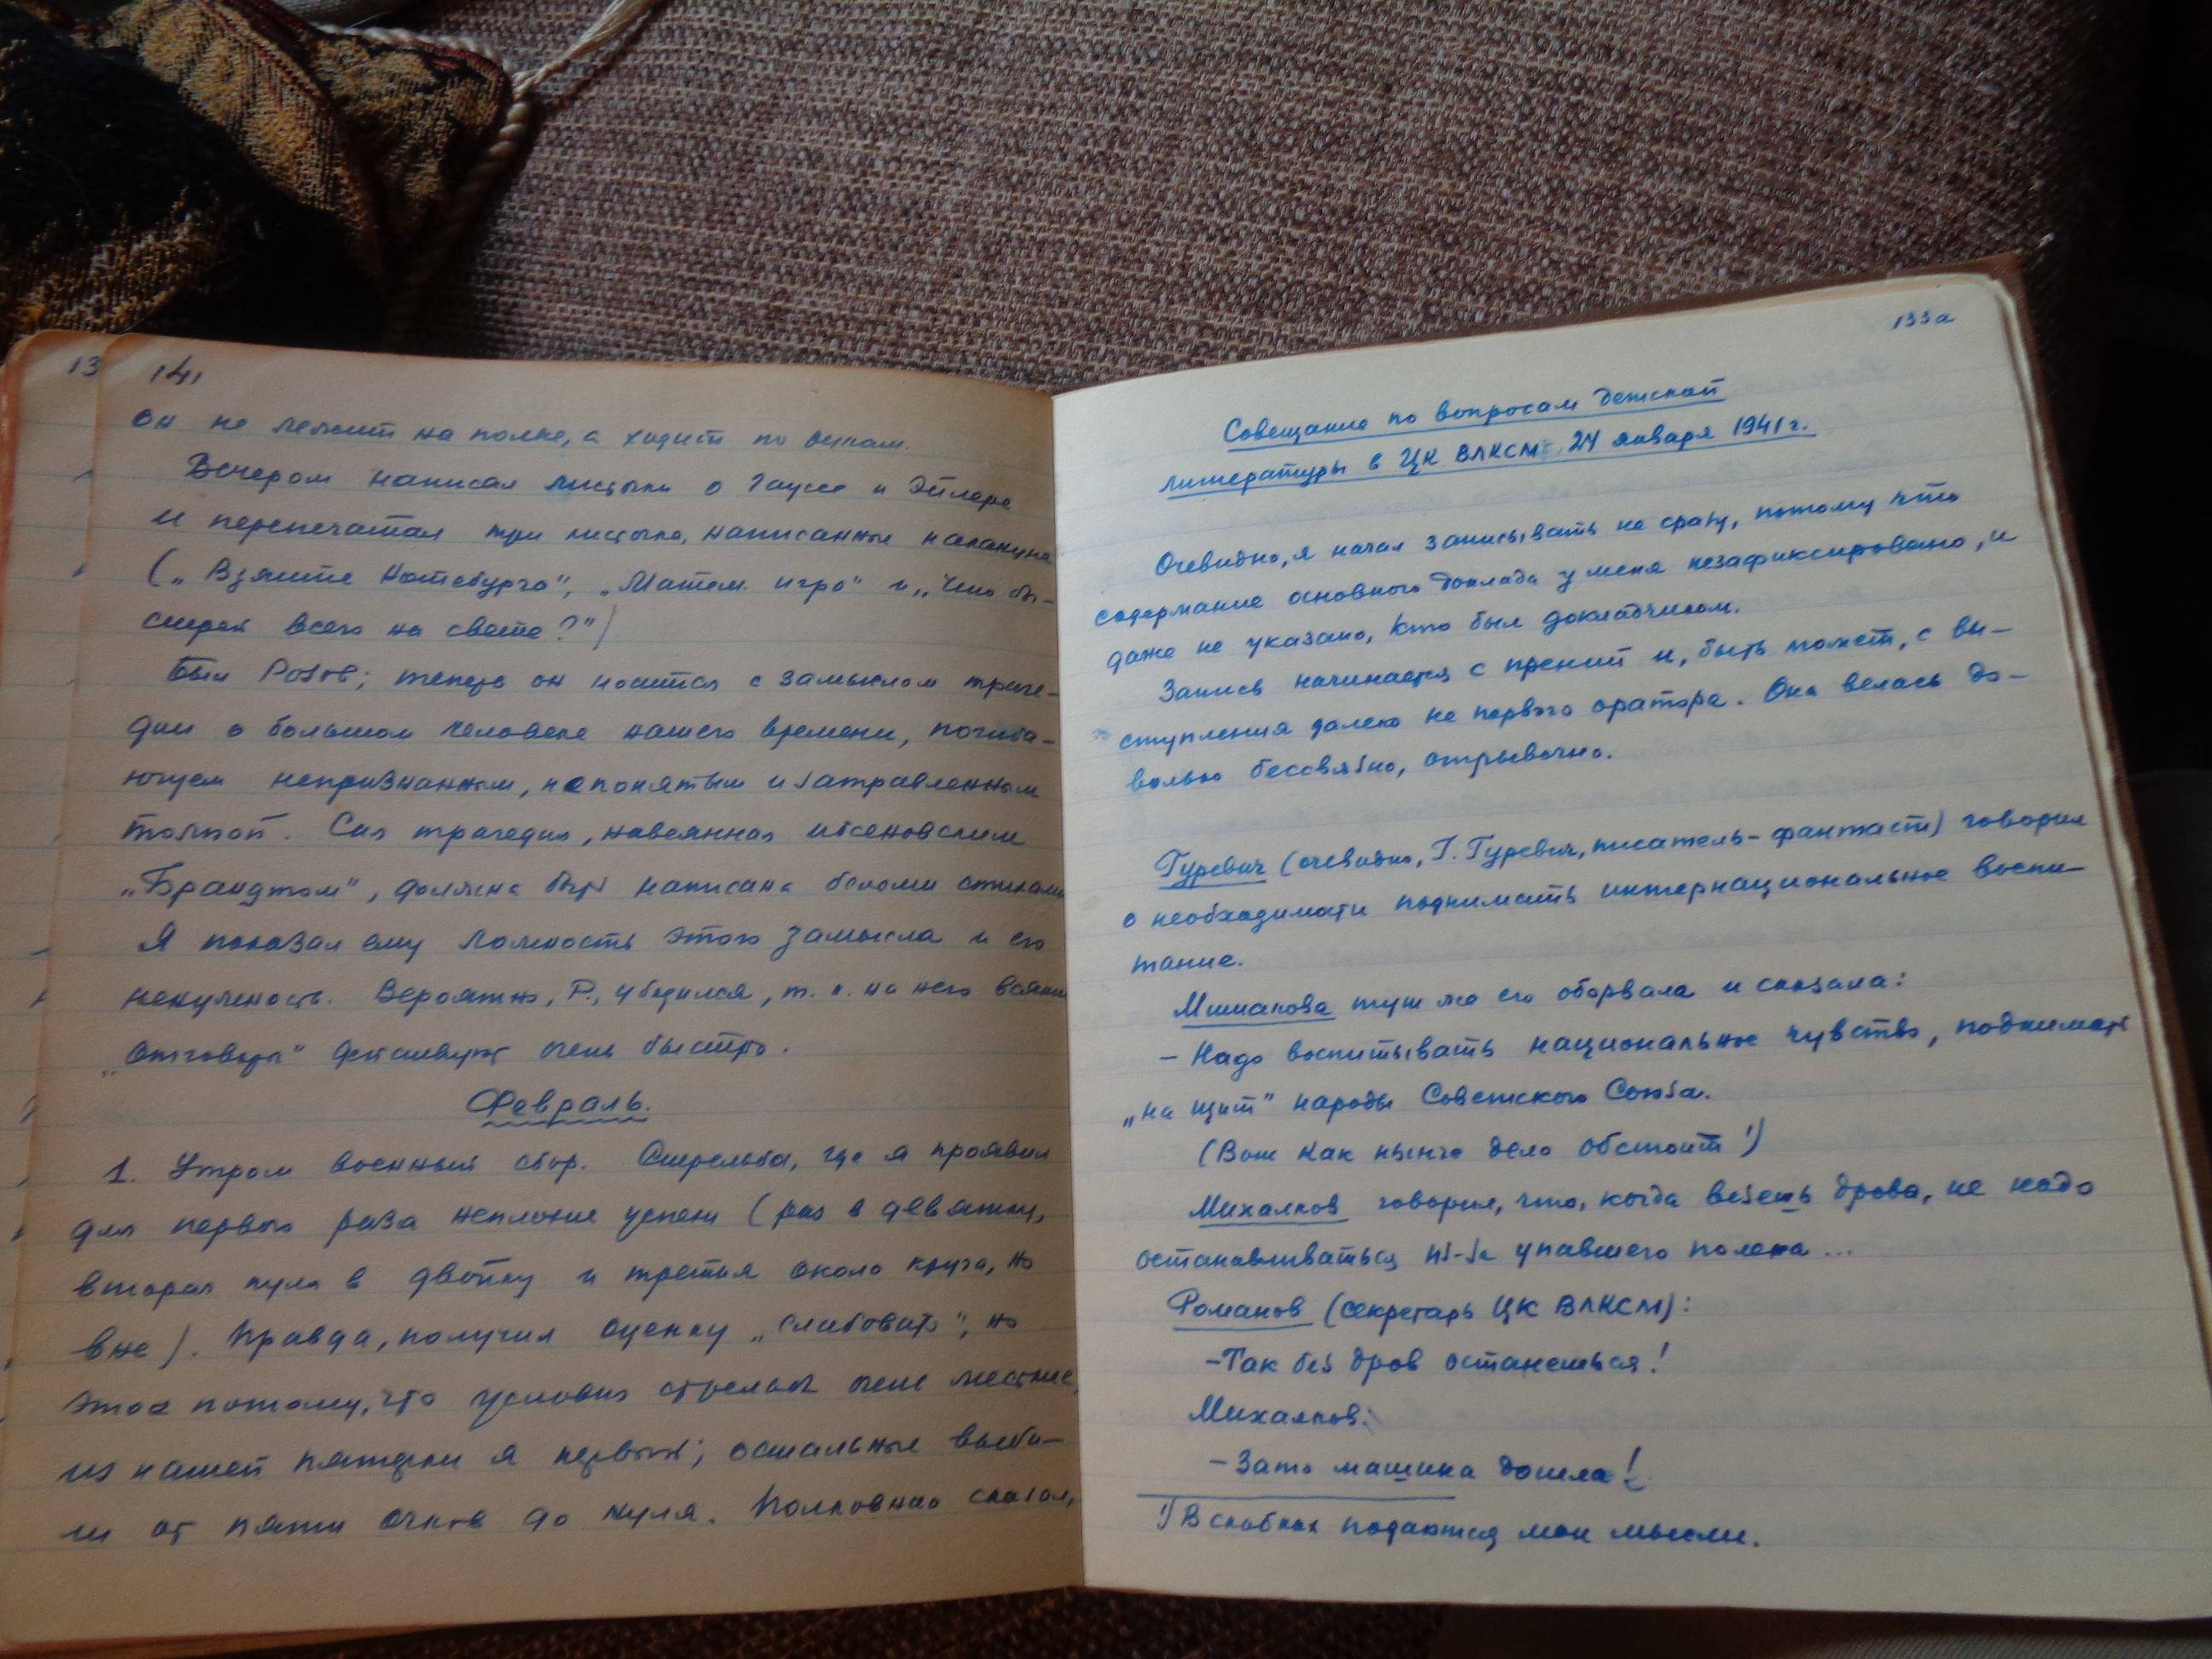 13
141
он не лежит на полке, а ходит по рукам.
Вечером написал листыли о Гауссе и Эйлере
и перепечатал три листыла, написанные накануне
(„Взятие Нотебурга", „Матем. игра" и „Что бы-
стрей всего на свете?")
Был Розов; теперь он носится с замыслом траге-
дии о большом человеке нашего времени, погиба-
ющем непризнанным, непонятым и затравленным
толпой. Сия трагедия, навеянная ибсеновским
„Брандтом", должна быть написана белыми стихами
Я показал ему ложность этого замысла и его
ненужность. Вероятно, Р., убедился, т. к. на него всякие
„отговоры" действуют очень быстро.
Февраль.
1. Утром военный сбор. Стрельба, где я проявил
для первого раза неплохие успехи (раз в девятку,
вторая пуля в двойку и третья около круга, но
вне). Правда, получил оценку „слабовато", но
это потому, что условия стрельбы очень жесткие,
из нашей пятерки я первый; остальные выби-
ли от пяти очков до нуля. Полковник сказал,
133а
Совещание по вопросам детской
литературы в ЦК ВЛКСМ 24 января 1941 г.
Очевидно, я начал записывать не сразу, потому что
содержание основного доклада у меня незафиксировано, и
даже не указано, кто был докладчиком.
Запись начинается с прений и, быть может, с вы-
ступления далеко не первого оратора. Она велась до-
вольно бессвязно, отрывочно.
Гуревич (очевидно, Г. Гуревич, писатель-фантаст) говорил
о необходимости поднимать интернациональное воспи-
тание.
Мишакова тут же его оборвала и сказала:
– Надо воспитывать национальное чувство, поднимать
„на щит" народы Советского Союза.
(Вот как нынче дело обстоит ¹)
Михалков говорил, что, когда везешь дрова, не надо
останавливаться из-за упавшего полена ...
Романов (секретарь ЦК ВЛКСМ):
– Так без дров останешься!
Михалков:
– Зато машина дошла!
¹) В скобках подаются мои мысли.